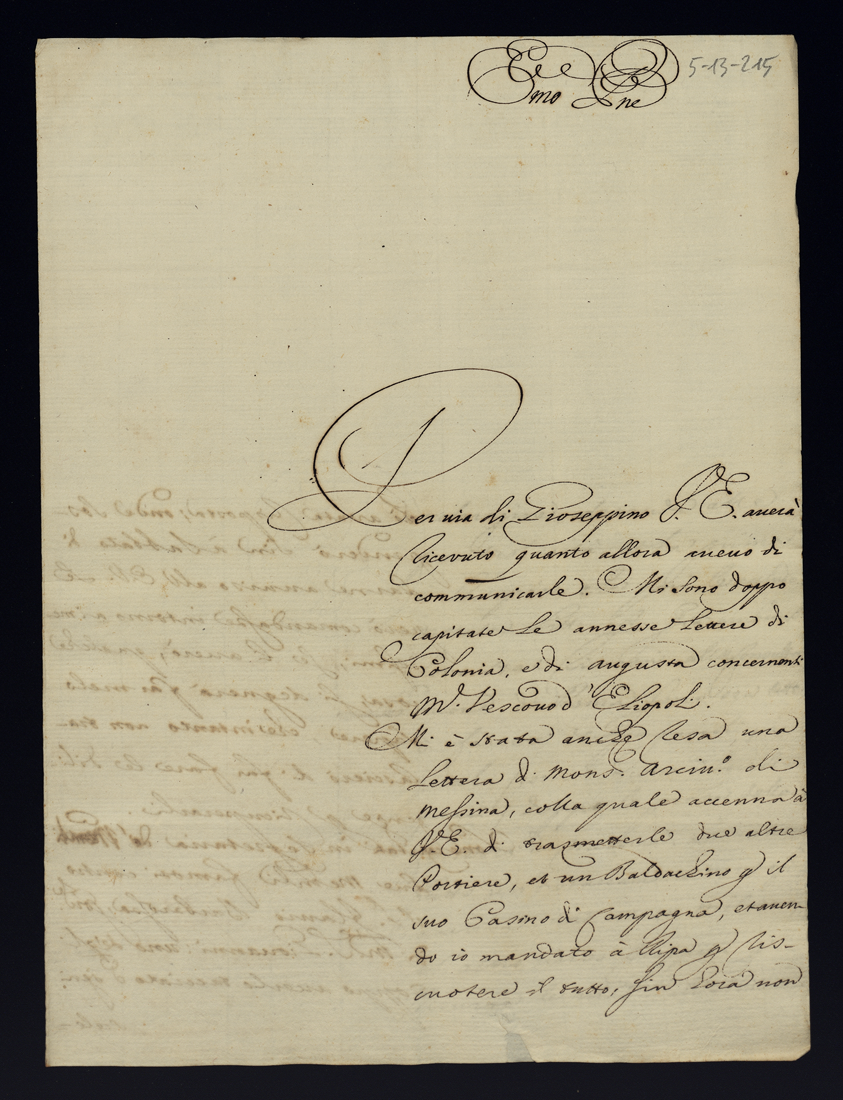 5-13-215
Emo Pne
Per via di Gioseppino V. E. averà
ricevuto quanto allora avevo di
communicarle. Mi sono doppo
capitate le annesse lettere di
Colonia, e di augusta concernenti
Mr. Vescovo d'Eliopoli.
Mi è stata anche resa una
lettera di Mons.r Arciv.o di
Messina, colla quale accenna à
V. E. di trasmetterle due altre
Portiere, et un Baldachino p il
suo Casino di Campagna, et aven-
do io mandato à Ripa p ris-
cuotere il tutto, sin hora non